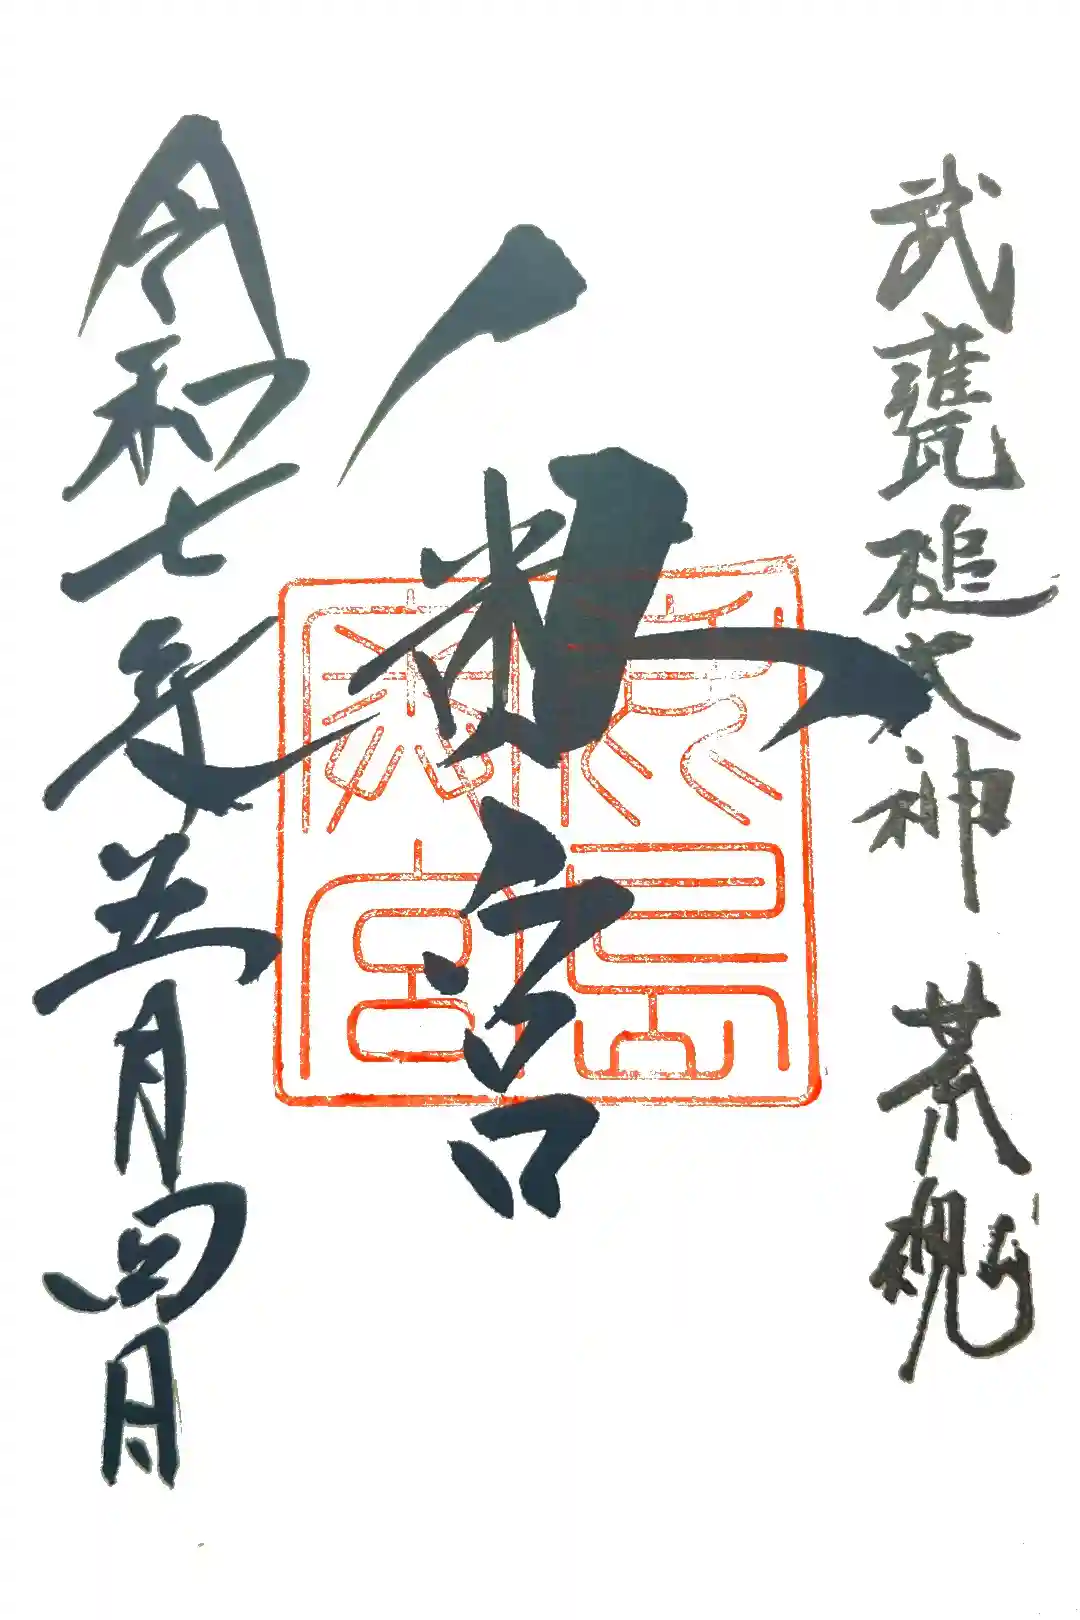 武甕槌大神 荒魂
奥宮
鹿島
奥宮
令和七年五月四日